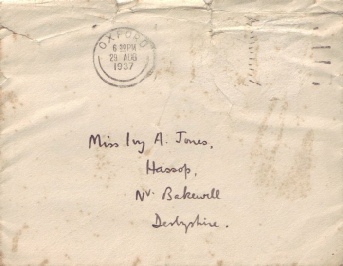 OXFORD
6 30 PM
29 AUG
1937
Miss Ivy A. Jones,
Hassop,
Nr. Bakewell
Derbyshire.